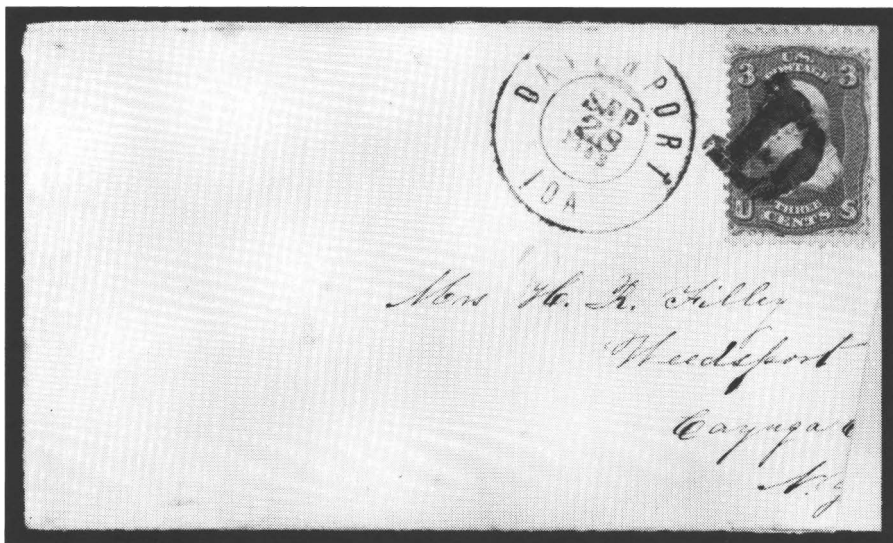 DAVENPORT
SEP
IOA
U.S.
POSTAGE
3 3
THREE
CENTS
U S
Mrs H. R. Filley
Weedsport
Cayuga
N.Y